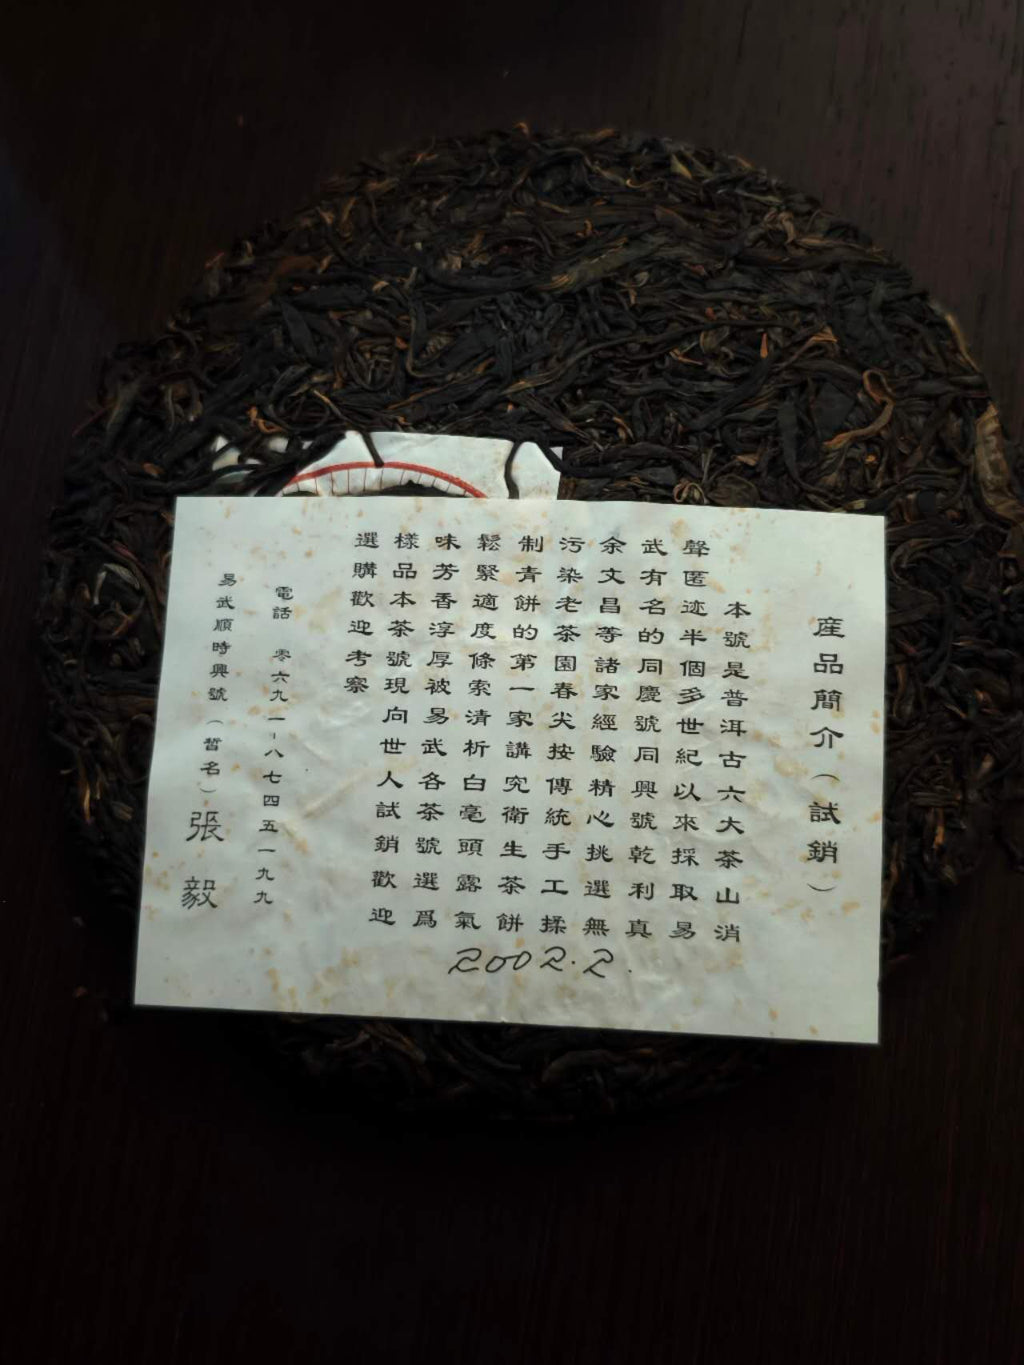 産品簡介（試銷）
本號是普洱古六大茶山消
聲匿迹半個多世紀以來採取易
武有名的同慶號同興號乾利真
余文昌等諸家經驗精心挑選無
污染老茶園春尖按傳統手工揉
制青餅的第一家講究衛生茶餅
鬆緊適度條索清析白毫頭露氣
味芳香淳厚被易武各茶號選爲
樣品本茶號現向世人試銷歡迎
選購歡迎考察
電話 零六九一-八七四五一九九
易武順時興號（暂名）張毅
2002.2.